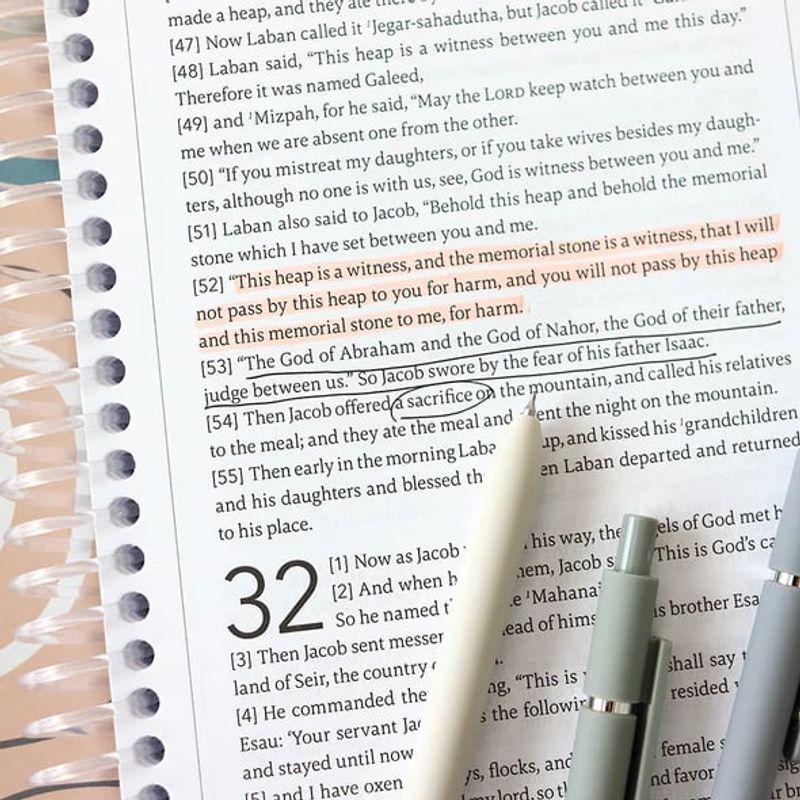 made a heap, and they ate
[47] Now Laban called it ᶦJegar-sahadutha, but Jacob called it
[48] Laban said, “This heap is a witness between you and me this day.”
Therefore it was named Galeed,
[49] and ᶦMizpah, for he said, “May the LORD keep watch between you and
me when we are absent one from the other.
[50] “If you mistreat my daughters, or if you take wives besides my daugh-
ters, although no one is with us, see, God is witness between you and me.”
[51] Laban also said to Jacob, “Behold this heap and behold the memorial
stone which I have set between you and me.
[52] “This heap is a witness, and the memorial stone is a witness, that I will
not pass by this heap to you for harm, and you will not pass by this heap
and this memorial stone to me, for harm.
[53] “The God of Abraham and the God of Nahor, the God of their father,
judge between us.” So Jacob swore by the fear of his father Isaac.
[54] Then Jacob offered a sacrifice on the mountain, and called his relatives
to the meal; and they ate the meal and ent the night on the mountain.
[55] Then early in the morning Laba up, and kissed his ᶦgrandchildren
and his daughters and blessed th en Laban departed and returned
to his place.
32
[1] Now as Jacob his way, the els of God met
[2] And when hem, Jacob This is God’s
So he named ᶦMahanai
[3] Then Jacob sent messen ead of his is brother Esa
land of Seir, the country
[4] He commanded the ng, “This is shall say
Esau: ‘Your servant Ja s the followin resided
and stayed until now
[5] and I have oxen ys, flocks, and female
my lord, so nd favor